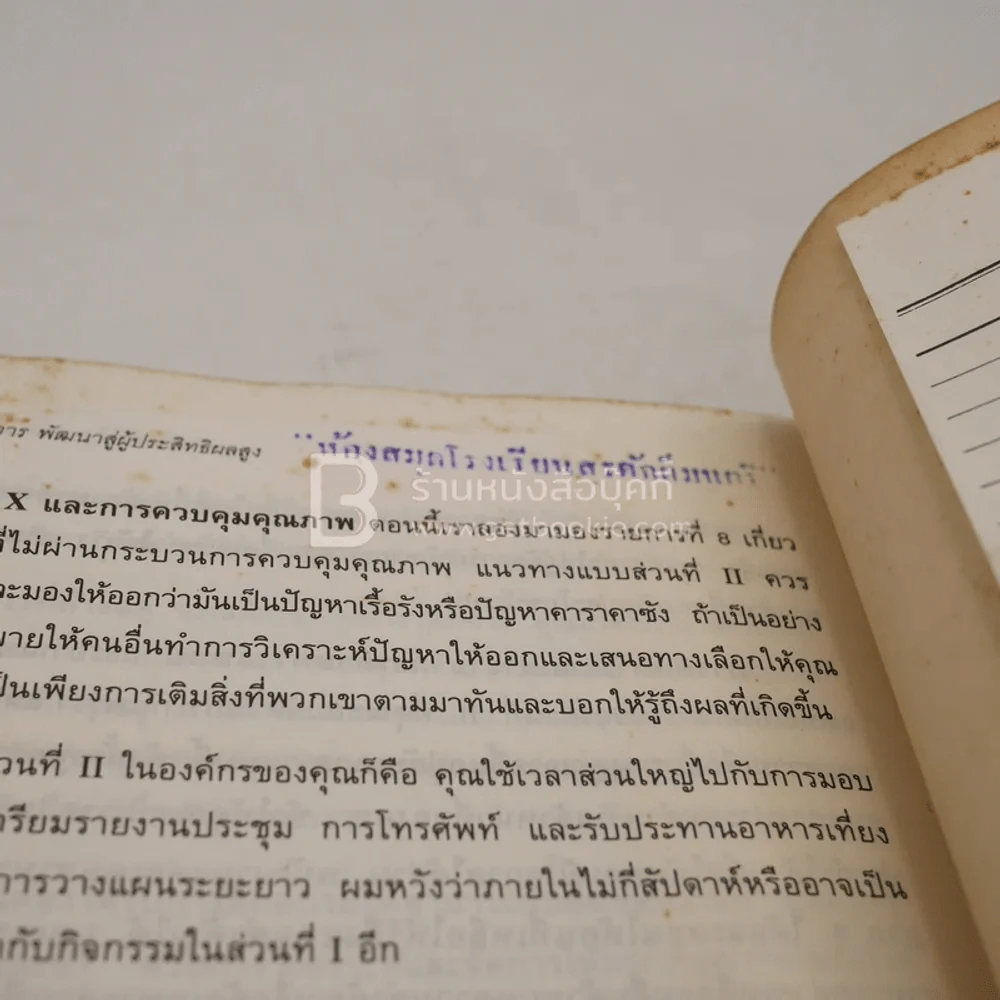 การ พัฒนาสู่ผู้ประสิทธิผลสูง
"ห้องสมุดโรงเรียน
ร้านหนังสือบุคกี้
X และการควบคุมคุณภาพ ตอนนี้เราลองมามองรายการที่ 8 เกี่ยว
ที่ไม่ผ่านกระบวนการควบคุมคุณภาพ แนวทางแบบส่วนที่ II ควร
จะมองให้ออกว่ามันเป็นปัญหาเรื้อรังหรือปัญหาคาราคาซัง ถ้าเป็นอย่าง
ให้คนอื่นทำการวิเคราะห์ปัญหาให้ออกและเสนอทางเลือกให้คุณ
เป็นเพียงการเติมสิ่งที่พวกเขาตามมาทันและบอกให้รู้ถึงผลที่เกิดขึ้น
ส่วนที่ II ในองค์กรของคุณก็คือ คุณใช้เวลาส่วนใหญ่ไปกับการมอบ
เตรียมรายงานประชุม การโทรศัพท์ และรับประทานอาหารเที่ยง
การวางแผนระยะยาว ผมหวังว่าภายในไม่กี่สัปดาห์หรืออาจเป็น
กับกิจกรรมในส่วนที่ I อีก